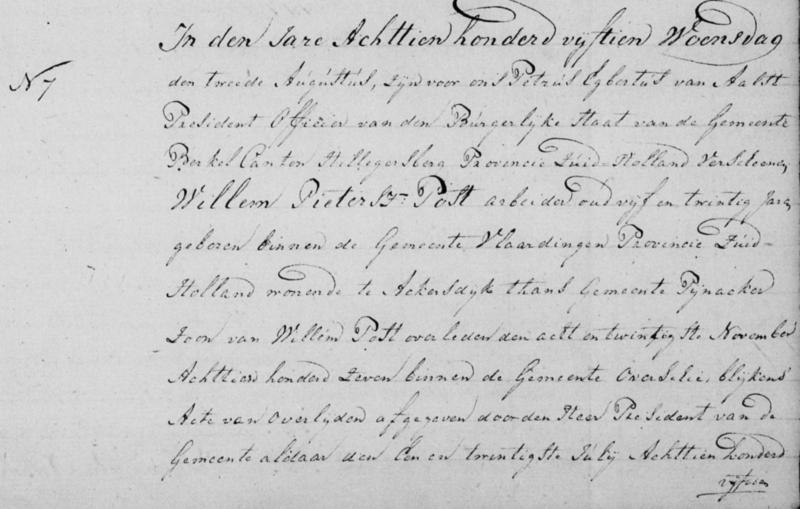 In den Jare Achttien honderd vyftien Woensdag
N 7
den tweede Augustus, zyn voor ons Petrus Egbertus van Aalst
President Officier van den Burgerlyke Staat van de Gemeente
Berkel Canton Hillegersberg Provincie Zuid-Holland Verscheenen
Willem Pietersz Post arbeider oud vyf en twintig Jare,
geboren binnen de Gemeente Vlaardingen Provincie Zuid-
Holland wonende te Ackersdyk thans Gemeente Pynacker
Zoon van Willem Post overleden den acht en twintigste November
Achttien honderd zeven binnen de Gemeente Overschie, blykens
Acte van Overlyden afgegeven door den Heer President van de
Gemeente aldaar den Een en twintigste July Achttien honderd
vyftien